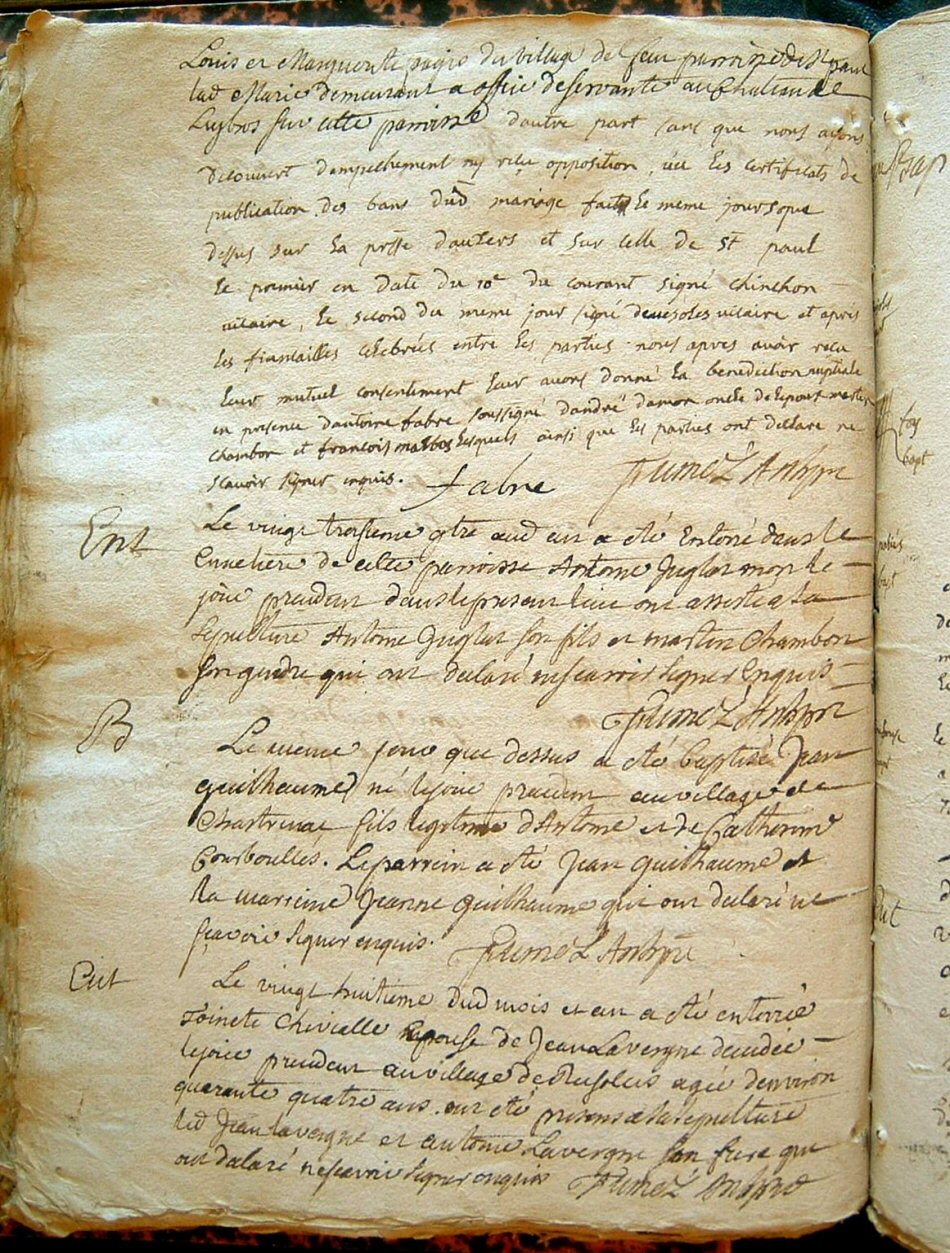 Louis et Marguerite pagis du village de feu parroisse de St paul
lad Marie demeurant a office de servante au Chateau de
Luybros sur cette parroisse d'autre part sans que nous ayons
decouvert d'empechement ny reçu opposition, veu les certificats de
publication des bans dud mariage fait le meme jour que
dessus sur la prsse d'auters et sur celle de St paul
le premier en date du 10e du courant signé chinchon
vicaire, le second du meme jour signé vicaire et apres
les fiancailles celebrées entre les parties nous apres avoir reçu
leur mutuel consentement leur avons donné la benediction nuptiale
en presence d'antoine fabre soussigné d'andré damon oncle de lepouse martin
chambon et francois malbos lesquels ainsi que les parties ont declare ne
scavoir signer enquis. fabre
Ent
Le vingt troisieme 9bre aud an a été Enterré dans le
Cimetiere de cette parroisse Antoine Juglar mort le
jour precedent dans le present lieu ont assisté a la
Sepulture Antoine Juglar son fils et martin Chambon
son gendre qui ont declaré ne scavoir signer Enquis
B
Le meme jour que dessus a été baptisé Jean
guilhaume né le jour precedent au village de
Chastrenac fils legitime d'Antoine et de Catherine
Courboulles. Le parrein a été Jean guilhaume et
la marreine Jeanne guilhaume qui ont declaré ne
sçavoir signer enquis.
Ent
Le vingt huitieme dud mois et an a été enterrée
Toinete Chivialle epouse de Jean Lavergne decedée
le jour precedent au village de agée denviron
quarante quatre ans. ont été presens a la sepulture
led Jean Lavergne et antoine Lavergne son frere qui
ont declaré ne scavoir signer enquis